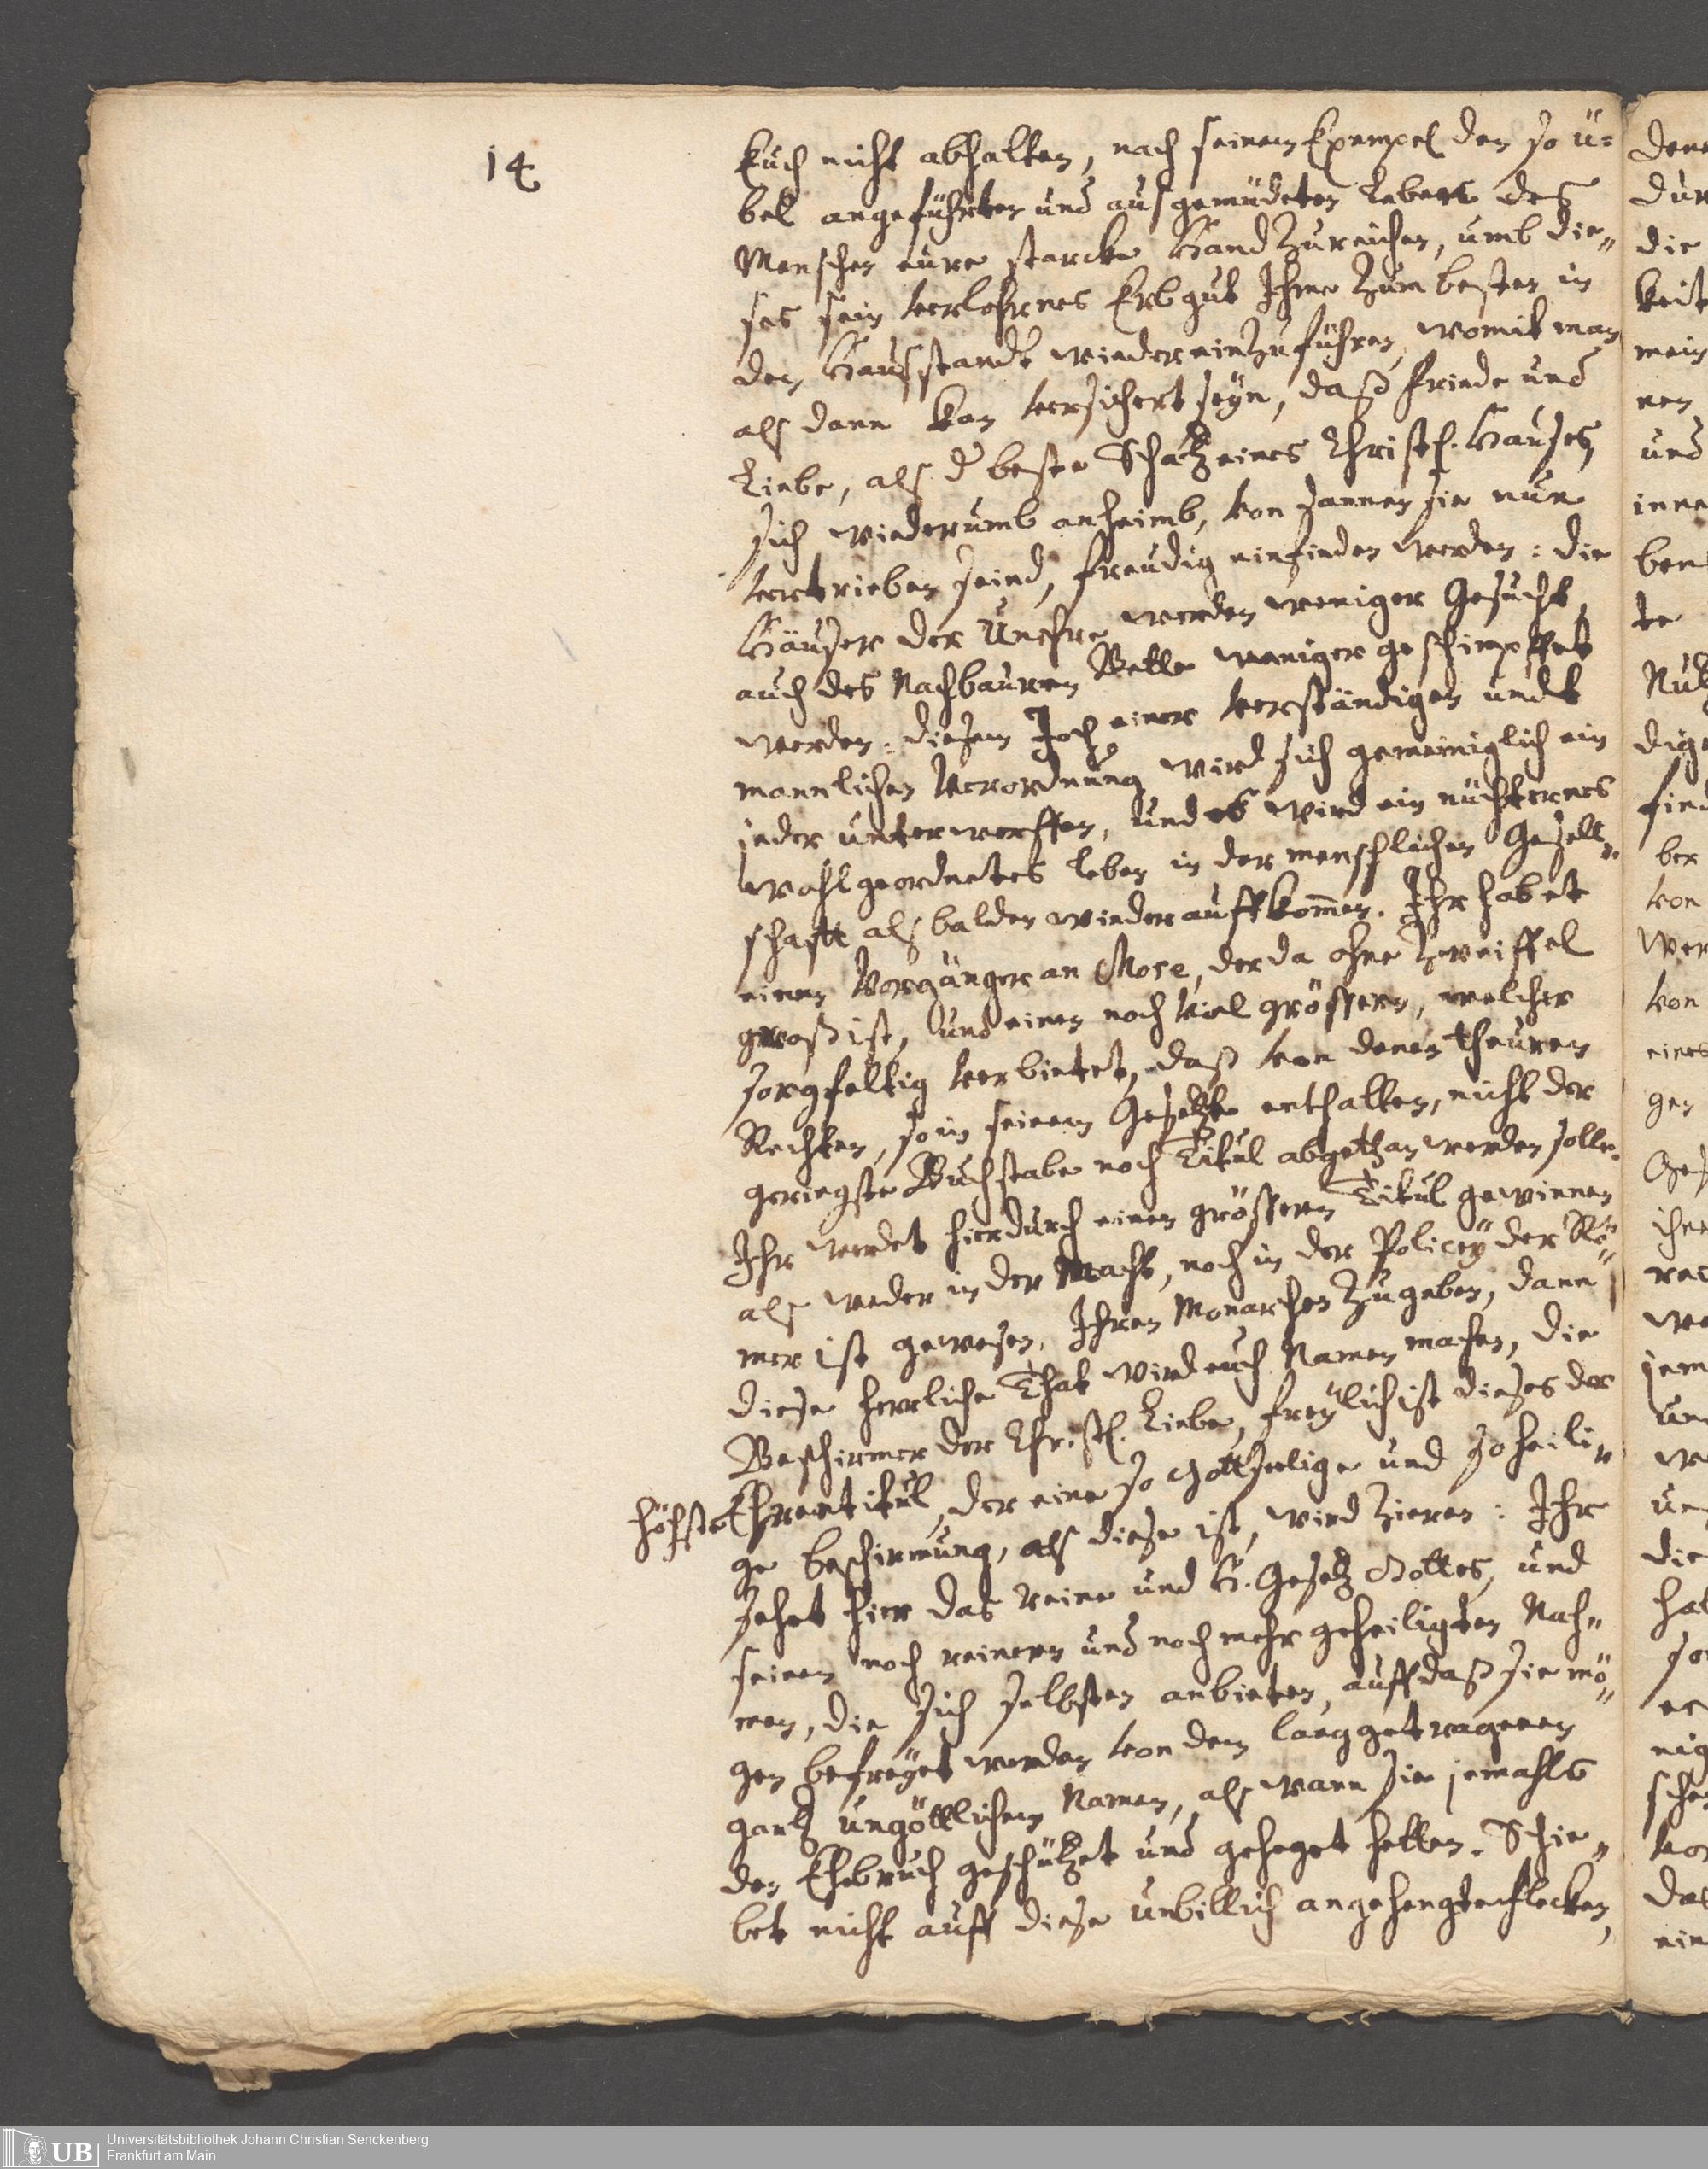 14
Euch nicht abhalten, nach seinem Exempel den so ü=
bel angeführten und ausgemüdeten Lebens des
Menschen eure starcke Hand zureichen, umb die„
ses sein verlohrnes Erbgut Ihme zum besten in
den Hausstandt wieder einzuführen, womit man
alß dann kan versichert seyn, daß friede und
Liebe, alß d beste Schatz eines Christl. Hauses,
sich wiederumb anheimb, von dannen sie nun
vertrieben seind, freudig einfinden werden: die
Häuser der Unehre werden weniger Gesucht,
auch des Nachbauren Bette weniger geschimpffet
werden: diesem Joch einer verständigen undt
mannlichen Verordnung wird sich gemeiniglich ein
jeder unterwerffen, und es wird ein nüchternes
wohlgeordnetes Leben in der menschlichen Gesell„
schafft alß balden wieder auffkom̄en. Ihr habet
einen Vorgänger an Mose, der da ohne Zweiffel
groß ist, und einen noch viel grössern, welcher
sorgfeltig verbietet, daß von denen theuren
Rechten, so in seinem Gesetze enthalten, nicht der
geringste Buchstabe noch Titul abgethan werden solle.
Ihr werdet hierdurch einen grössern Titul gewinnen
alß weder in der Macht, noch in der Policey der Rö„
mer ist gewesen, Ihren Monarchen zugeben, dann
diese herrliche That wird euch Namen machen, die
Beschirmer der Christl. Liebe, freylich ist dieses der
höchste Ehrentitul, der eine so Gottseelige und so heili„
ge beschirmung, alß diese ist, wird zieren: Ihr
sehet hier das reine und H. Gesetz Gottes, und
seinen noch reinern und noch mehr geheiligten Nah„
men, die sich selbsten anbieten, auff daß sie mö„
gen befreyet werden von dem lang getragenen
gantz ungöttlichem Namen, alß wann sie jemahls
den Ehebruch geschützet und geheget hetten. Schie„
bet nicht auff diese unbillich angehengte flecken,
Universitätsbibliothek Johann Christian Senckenberg
Frankfurt am Main
UB